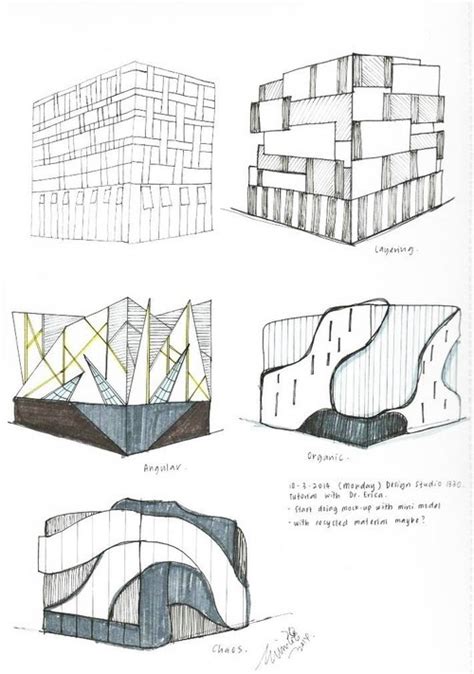 Layering.
Angular.
Organic.
10-3-2014 (Monday) Design Studio 1330.
Tutorial with Dr. Erica.
- Start doing mock-up with mini model
- with recycled material maybe?
Chaos.